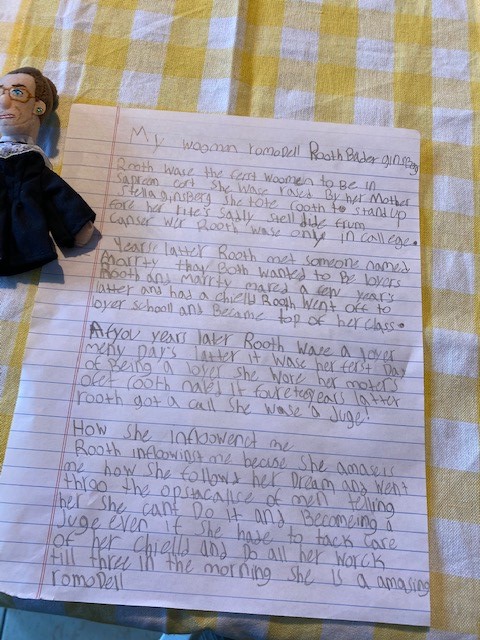 My woomin romodell Rooth Bader ginsberg
Rooth wase the ferst woomen to Be in
Saprem cort she wase raed By her Mother
stella ginsBerg she tote rooth to stand up
fore her rite's sadly shell dide from
canser wer Rooth wase only in callege.
Yearse latter Rooth met someone named
Marrty thay Both wanted to Be loyers
Rooth and marrty mared a few year's
latter and had a chielld Rooth went off to
loyer school and Became top of her class.
A fyou years later Rooth wase a loyer
meny Day's latter it wase her ferst Day
of Being a loyer she wore her moters
rooth got a call she wase a Juge!
How she inflowend me
Rooth inflowinst me becuse she amases
me how she follows her Dream and went
throo the opstacallce of men telling
her she cant Do it and Becomeing a
Juge even if she hase to tack care
of her chielld and Do all her worck
till three in the morning she is a amasing
romodell